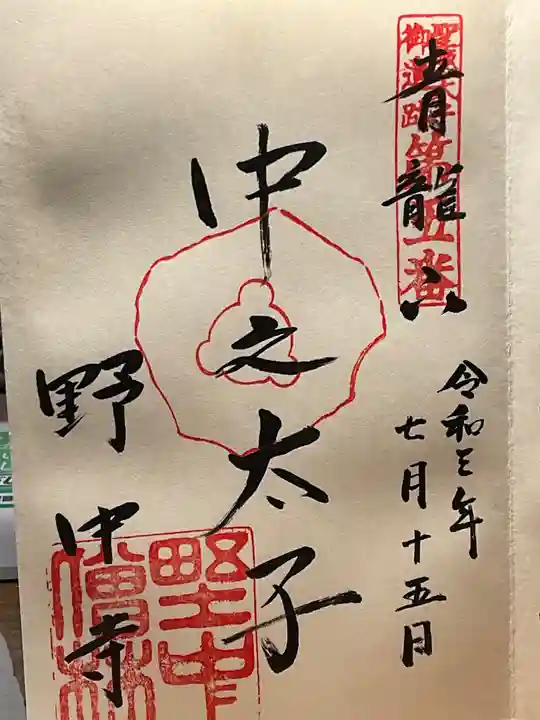 聖徳太子
御遺跡第五番
青龍山
令和三年
七月十五日
中之太子
野中寺
野中
僧林